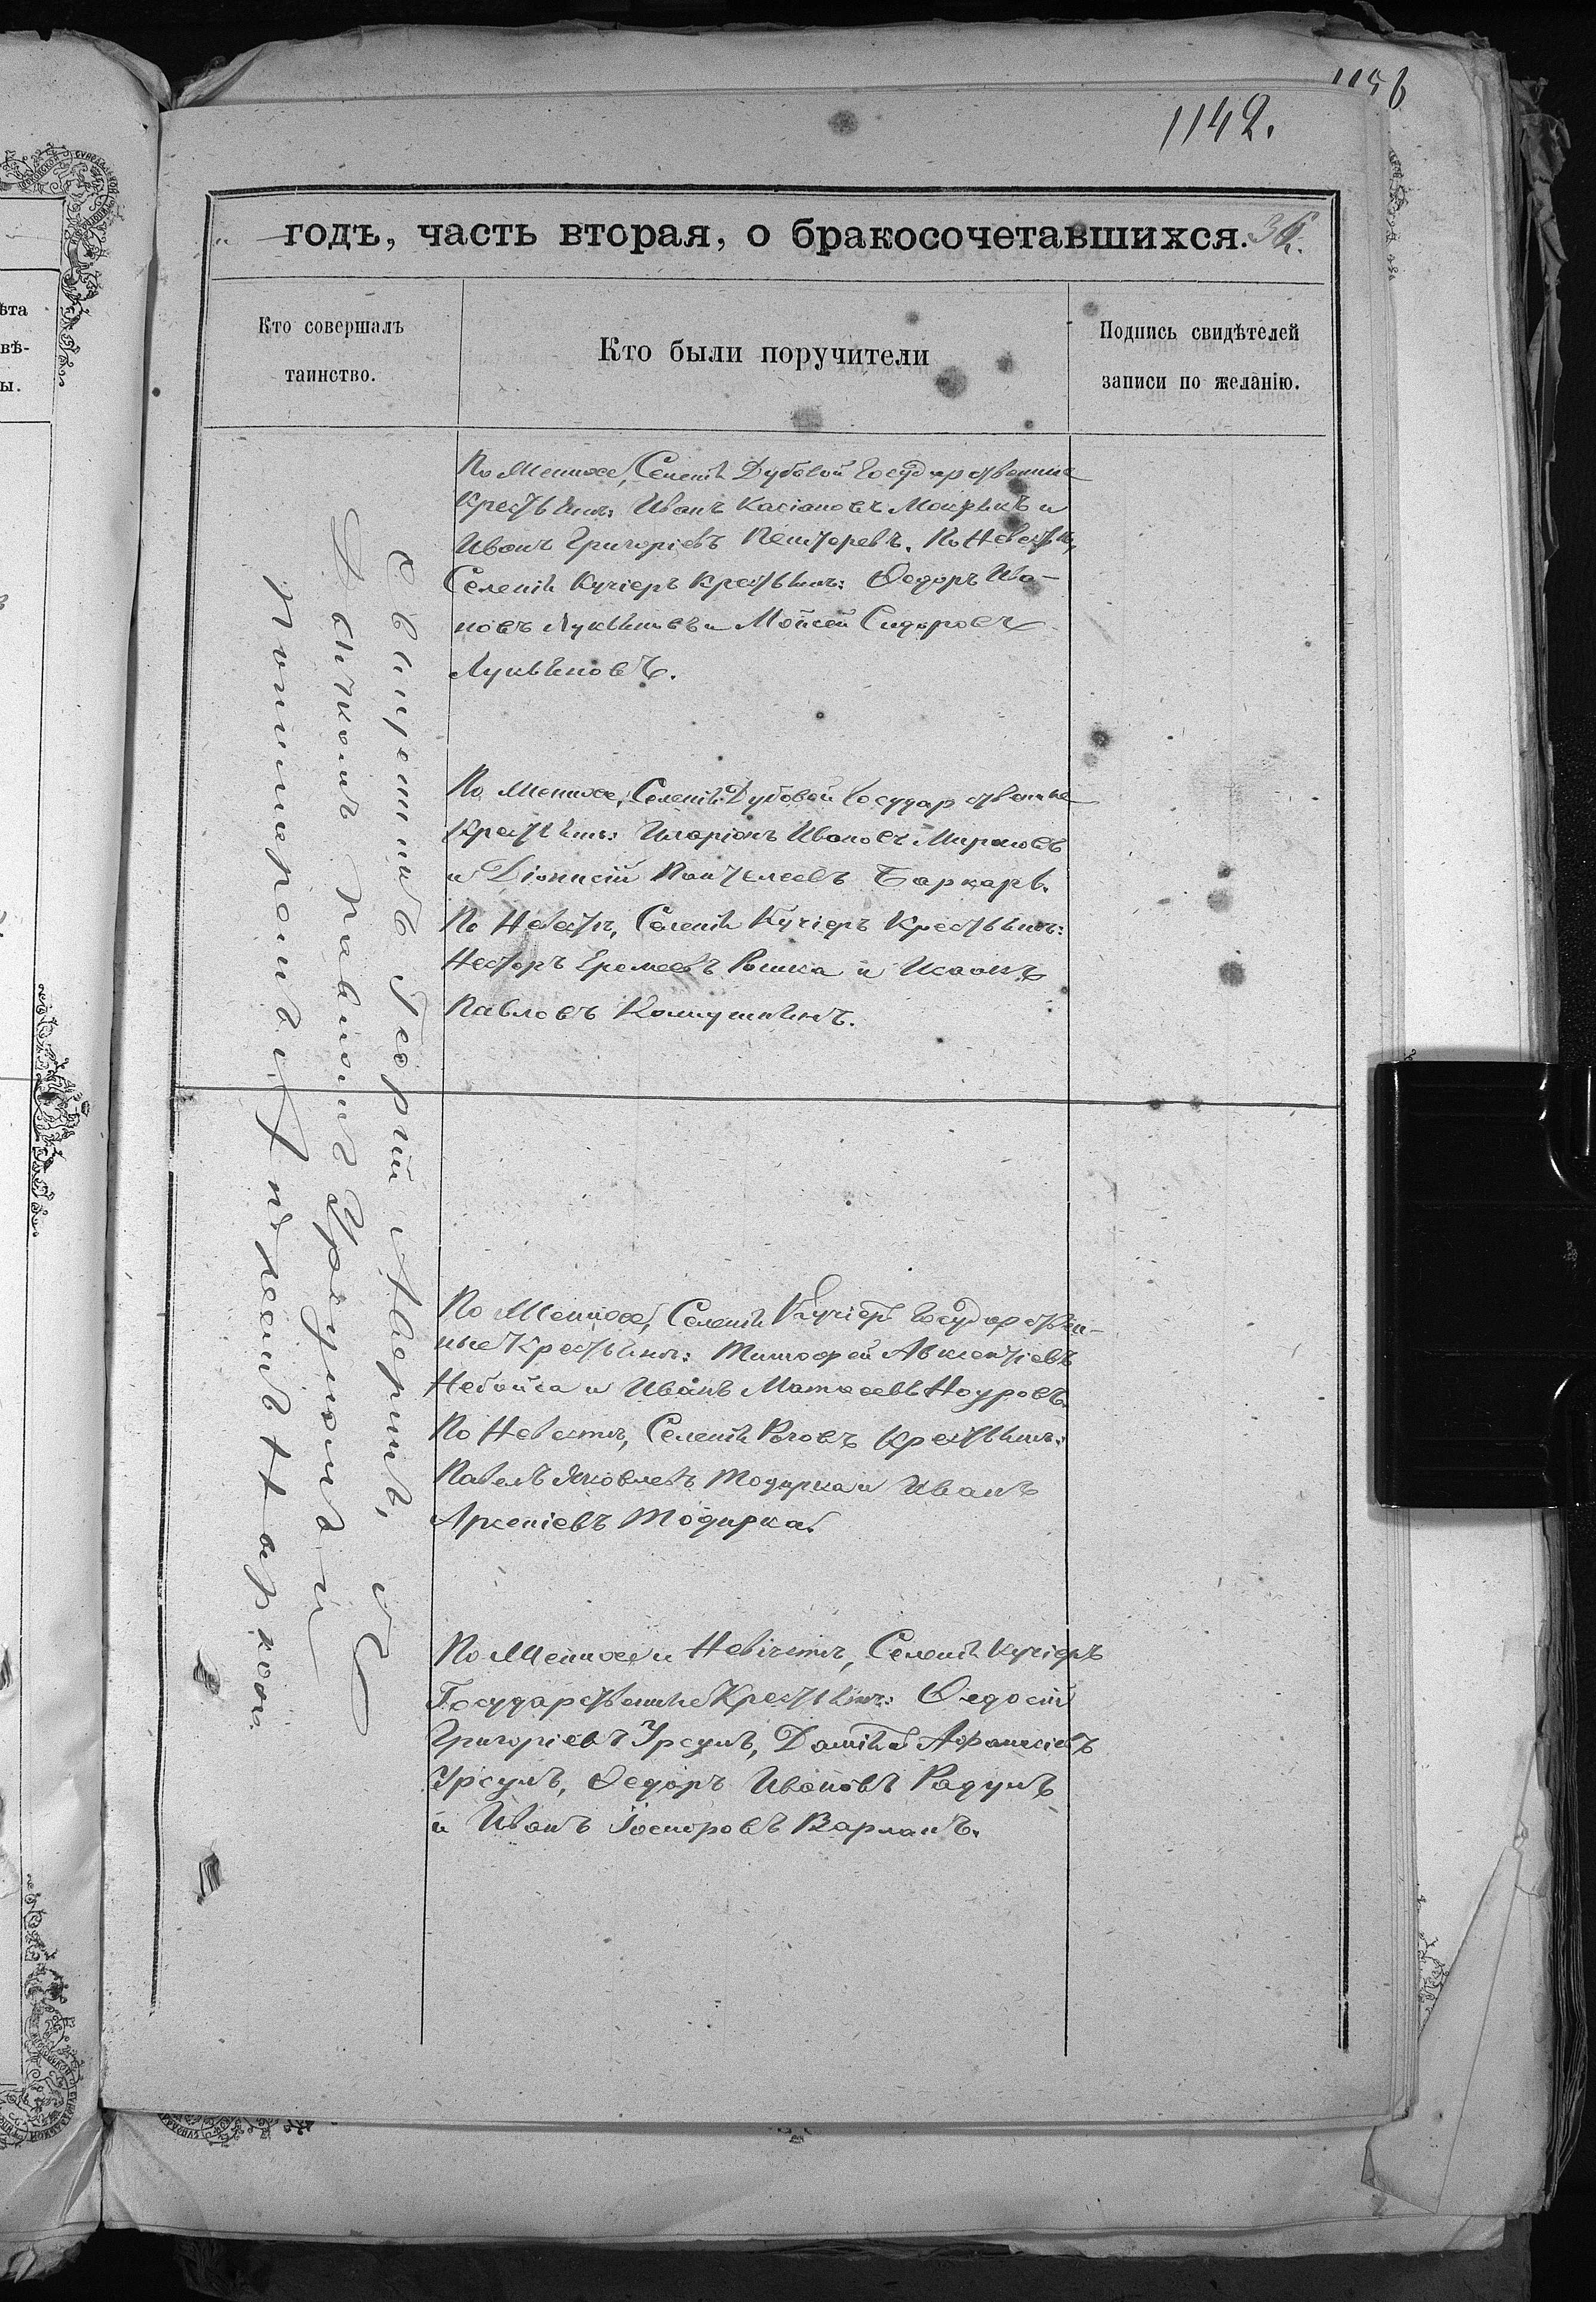 1156
1142.
годъ, часть вторая, о бракосочетавшихся.
Кто совершалъ
таинство.
Кто были поручители
Подпись свидѣтелей
записи по желанію.
По Женихе, Селенія Дубовой Государственные
Крестьяне: Иванъ Касіановъ Мокрякъ и
Иванъ Григоріевъ По Невестѣ,
Селенія Кучіеръ Крестьяне: Ѳедоръ Ива-
новъ Лукьяновъ и Мойсей Сидоровъ
Лукьяновъ.
По Женихе, Селенія Дубовой Государственные
Крестьяне: Иларіонъ Ивановъ Мироновъ
и Діонисій Пантелеевъ Баркарь.
По Невестѣ, Селенія Кучіеръ Крестьяне:
Несторъ Еремеевъ Рошка и Исаакъ
Павловъ
По Женихе, Селенія Кучіеръ Государствен-
ные Крестьяне: Тимофей Авксентіевъ
Небойса и Иванъ Матфеевъ
По Невестѣ, Селенія Рогозъ Крестьяне:
Павелъ Яковлевъ Тодирка и Иванъ
Арсеніевъ Тодирка.
По Женихе и Невѣстѣ, Селенія Кучіеръ
Государственные Крестьяне: Ѳедосій
Григоріевъ Урсулъ, Даміанъ Афанасіевъ
Урсулъ, Ѳедоръ Ивановъ Радулъ
и Иванъ Варланъ.
Священникъ Георгій